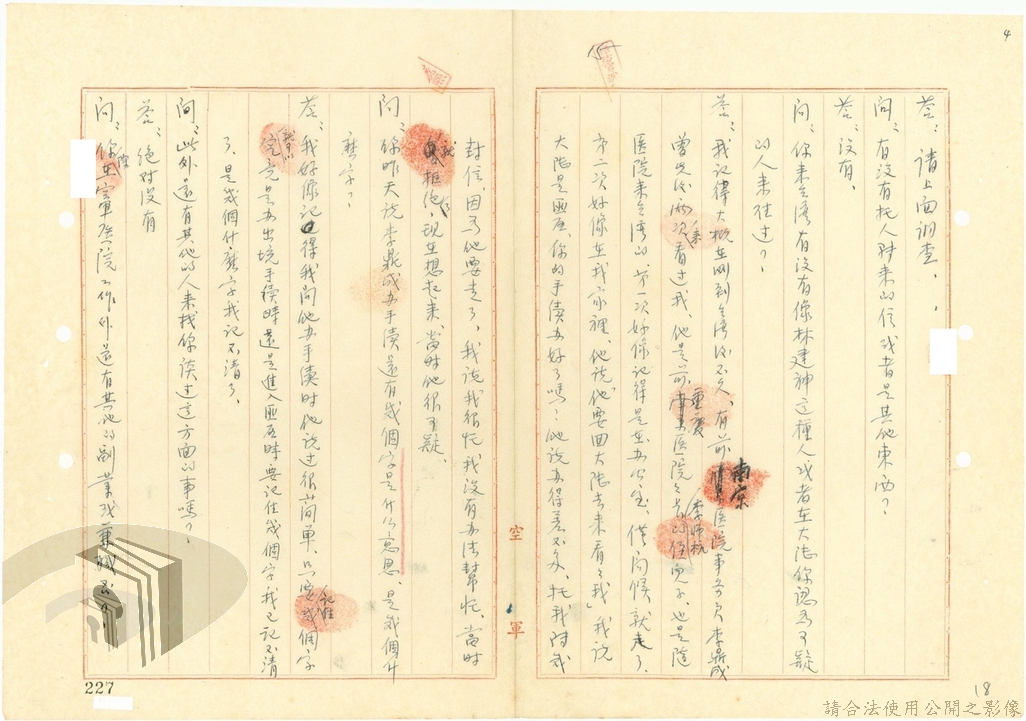 4
答：請上面調查。
問：有沒有托人附來的信或者是其他東西？
答：沒有。
問：你來台灣有沒有像林建神這種人或者在大陸你認為可疑
的人來往过？
答：我記得大概在剛到台灣後不久，有前南京医院事务员李鼎成
曾先後兩次來看过我，他是前重慶医院李師杭的侄兒子也是隨
医院來台灣的，第一次好像記得是在办公室，僅问候就走了。
第二次好像在我家裡，他說「他要回大陸去來看看我」我說
大陸是匪区，你的手續办好了嗎？他說办得差不多，托我附我
封信，因為他要走了，我說我很忙我沒有办法幫忙，當時
就拒絕他，現在想起來，當時他很可疑。
問：你昨天說李鼎成办手續還有幾個字是什么意思，是幾個什
麼字？
答：我好像記得我問他办手續时他說过很简單，只要記住幾個字
就可以究竟是办出境手續時還是進入匪区時要記住幾個字我已記不清
了，是幾個什麼字我記不清了。
問：此外還有其他的人來找你談过這方面的事嗎？
答：絕对沒有
問：你在空軍医院工作外還有其他的副業或兼職
空軍
15
18
227
請合法使用公開之影像